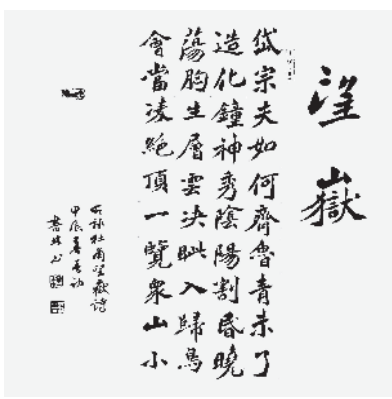 望嶽
岱宗夫如何齊魯青未了
造化鐘神秀陰陽割昏曉
蕩胸生層雲決眦入歸鳥
會當凌絕頂一覽衆山小
杜甫望嶽詩
甲辰春